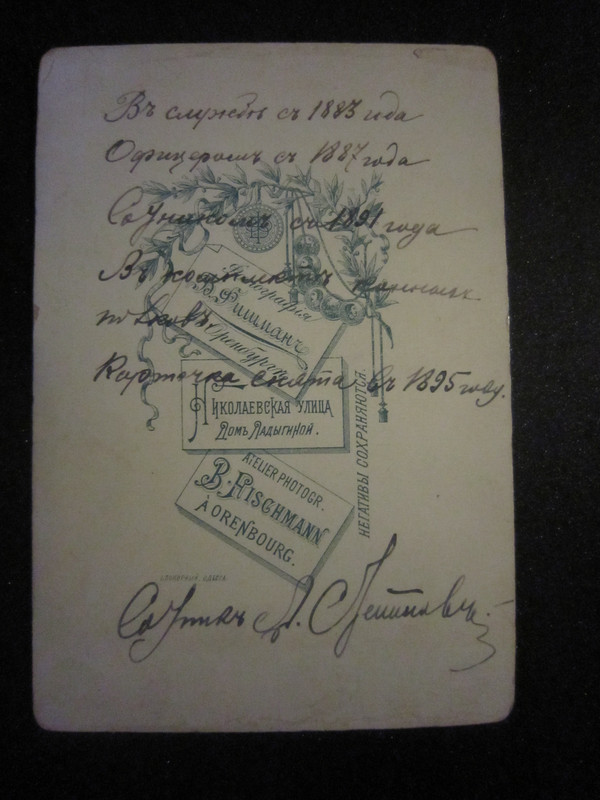 Въ службѣ съ 1883 года
Офицеромъ съ 1887 года
Сотникомъ съ 1891 года
Въ комплектѣ
полковъ
Карточка снята въ 1895 году.
Фотографія
В. Фишманъ
Оренбургъ
Николаевская улица
Домъ Ладыгиной.
Негативы сохраняются.
Atelier Photogr.
B. Fischmann
à Orenbourg.
Сотникъ А.